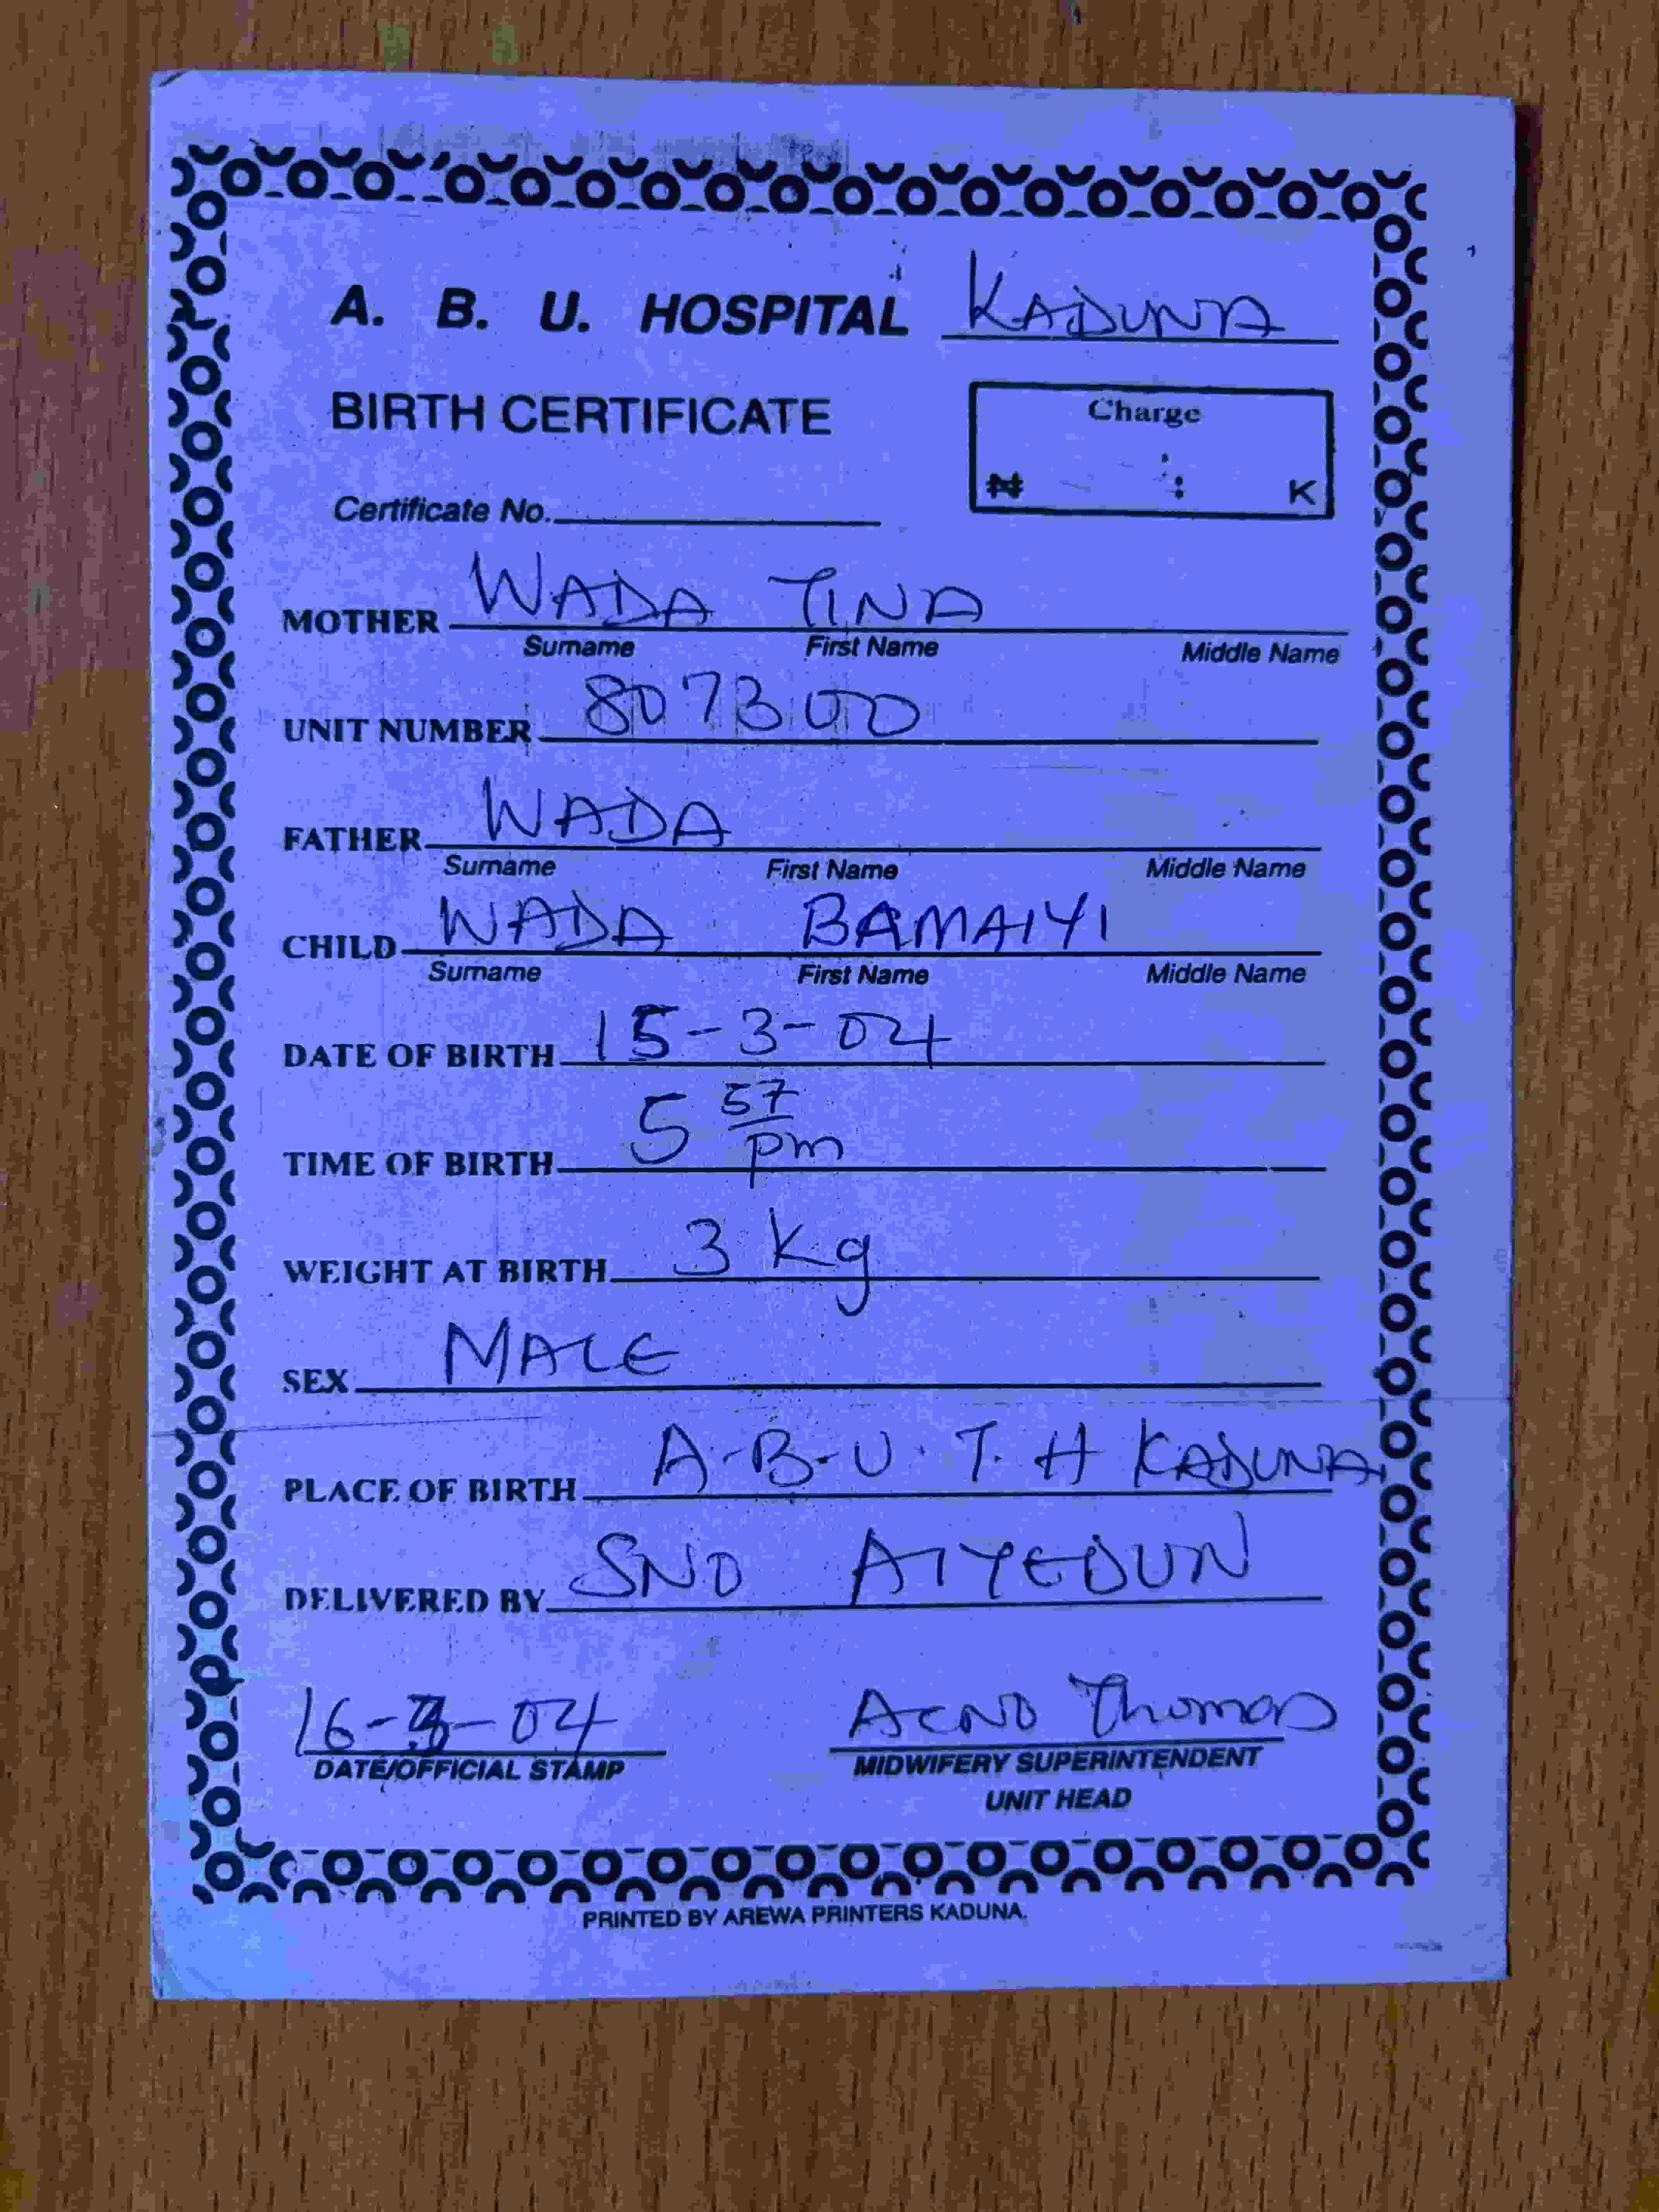 A. B. U. HOSPITAL KADUNA
BIRTH CERTIFICATE
Charge
₦ : K
Certificate No.
MOTHER WADA TINA
Surname First Name Middle Name
UNIT NUMBER 807300
FATHER WADA
Surname First Name Middle Name
CHILD WADA BAMAIYI
Surname First Name Middle Name
DATE OF BIRTH 15-3-04
TIME OF BIRTH 5 57 pm
WEIGHT AT BIRTH 3 Kg
SEX MALE
PLACE OF BIRTH A.B.U.T.H KADUNA
DELIVERED BY SNO AIYEDUN
16-3-04 ACNO Thomas
DATE/OFFICIAL STAMP MIDWIFERY SUPERINTENDENT
UNIT HEAD
PRINTED BY AREWA PRINTERS KADUNA.